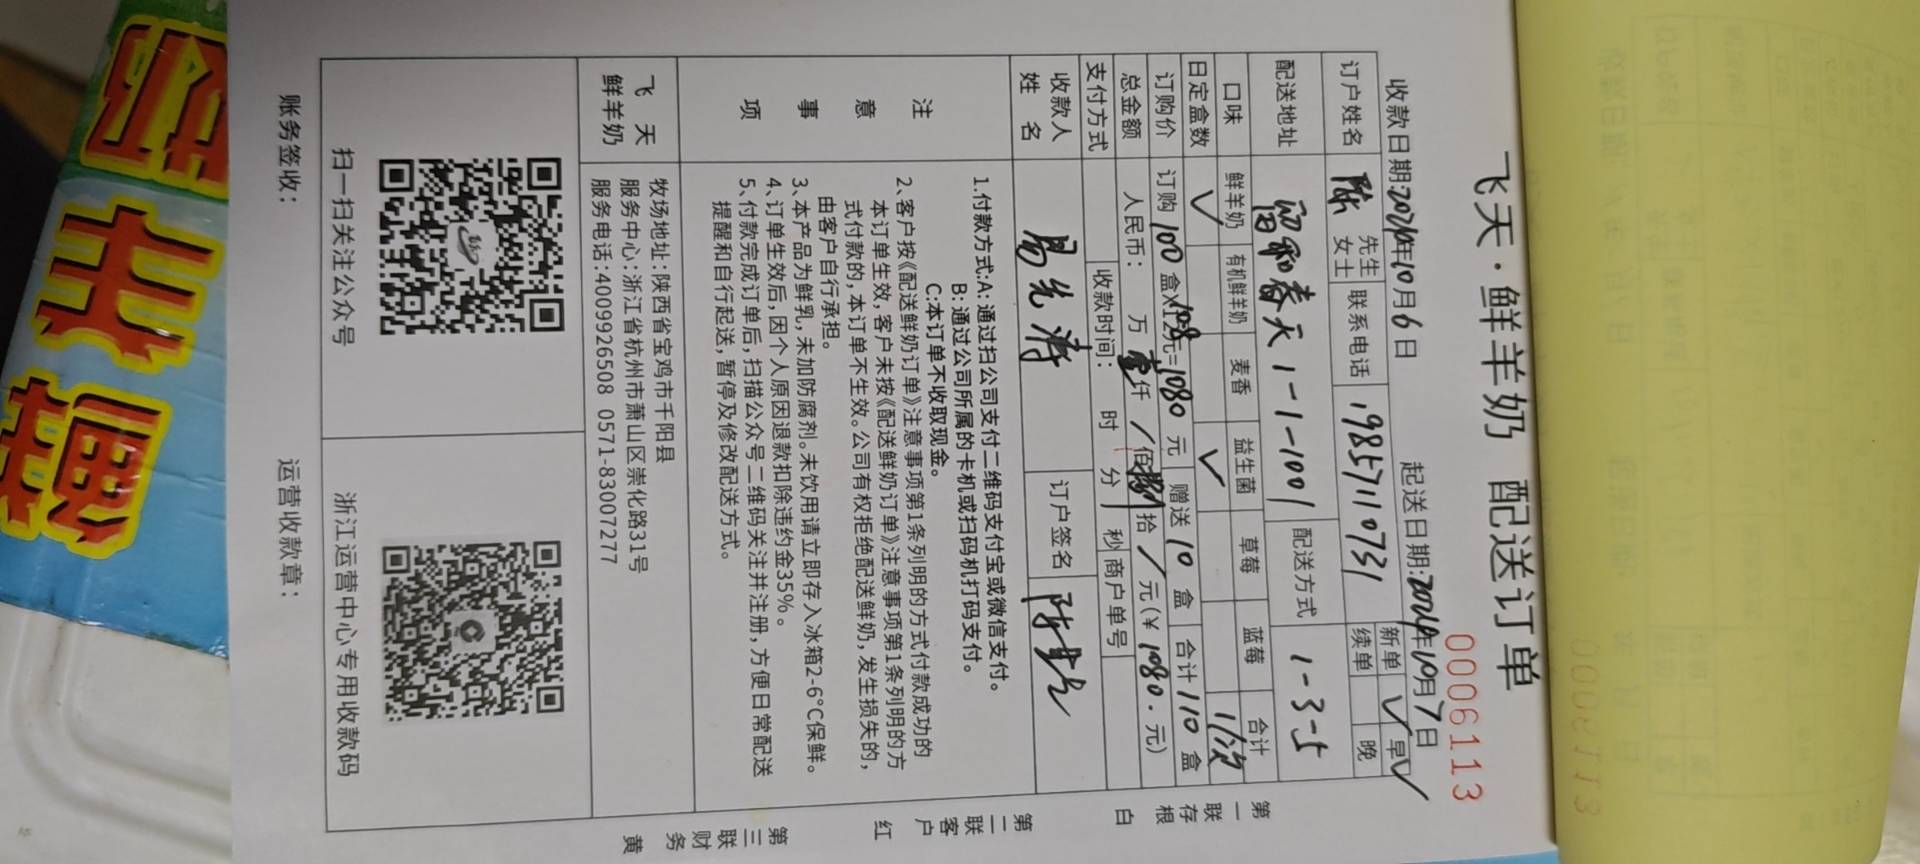 飞天·鲜羊奶 配送订单
00061113
收款日期:2024年10月6日 起送日期:2024年10月7日
订户姓名 陈 先生 女士 联系电话 19857110731 新单 ✓ 早 ✓ 续单 晚
配送地址 春天1-1-1001 配送方式 1-3-5
口味 鲜羊奶 有机鲜羊奶 麦香 益生菌 草莓 蓝莓 合计
日定盒数 ✓ ✓ 1/次
订购价 订购100盒X10.8元=1080元 赠送10盒 合计110盒
总金额 人民币: 万 壹仟 / 佰 捌拾 / 元(¥1080.元)
支付方式 收款时间: 时 分 秒 商户单号
收款人姓名 易 订户签名 陈
注意事项
1.付款方式:A:通过扫公司支付二维码支付宝或微信支付。
B:通过公司所属的卡机或扫码机打码支付。
C:本订单不收取现金。
2、客户按《配送鲜奶订单》注意事项第1条列明的方式付款成功的
本订单生效,客户未按《配送鲜奶订单》注意事项第1条列明的方
式付款的,本订单不生效。公司有权拒绝配送鲜奶,发生损失的,
由客户自行承担。
3、本产品为鲜乳,未加防腐剂。未饮用请立即存入冰箱2-6°C保鲜。
4、订单生效后,因个人原因退款扣除违约金35%。
5、付款完成订单后,扫描公众号二维码关注并注册,方便日常配送
提醒和自行起送,暂停及修改配送方式。
飞天鲜羊奶
牧场地址:陕西省宝鸡市千阳县
服务中心:浙江省杭州市萧山区崇化路31号
服务电话:4009926508 0571-83007277
扫一扫关注公众号
浙江运营中心专用收款码
账务签收: 运营收款章:
第一联存根 白
第二联客户 红
第三联财务 黄